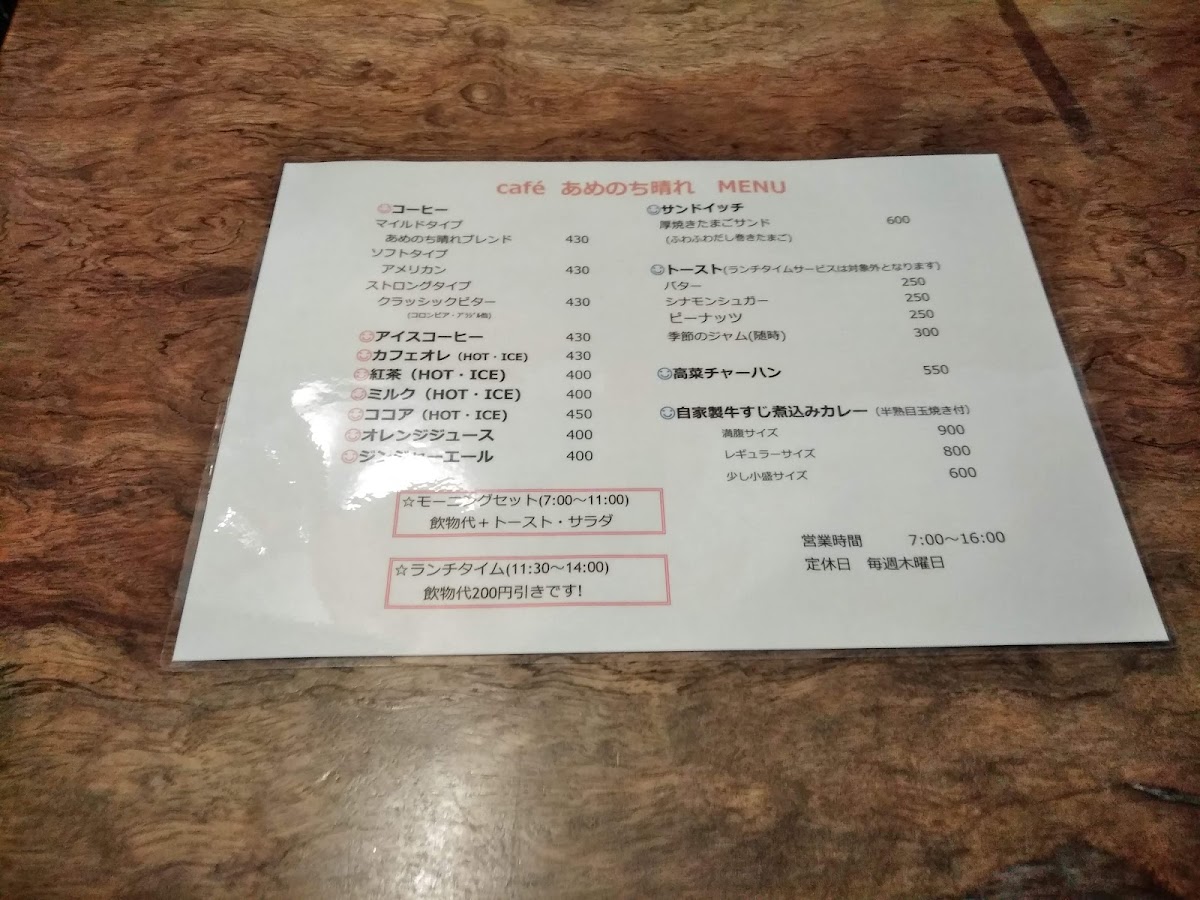 café あめのち晴れ MENU
コーヒー
マイルドタイプ
あめのち晴れブレンド 430
ソフトタイプ
アメリカン 430
ストロングタイプ
クラッシックビター 430
(コロンビア・ブラジル他)
アイスコーヒー 430
カフェオレ (HOT・ICE) 430
紅茶 (HOT・ICE) 400
ミルク (HOT・ICE) 400
ココア (HOT・ICE) 450
オレンジジュース 400
ジンジャーエール 400
☆モーニングセット(7:00～11:00)
飲物代+トースト・サラダ
☆ランチタイム(11:30～14:00)
飲物代200円引きです!
サンドイッチ
厚焼きたまごサンド 600
(ふわふわだし巻きたまご)
トースト(ランチタイムサービスは対象外となります)
バター 250
シナモンシュガー 250
ピーナッツ 250
季節のジャム(随時) 300
高菜チャーハン 550
自家製牛すじ煮込みカレー (半熟目玉焼き付)
満腹サイズ 900
レギュラーサイズ 800
少し小盛サイズ 600
営業時間 7:00～16:00
定休日 毎週木曜日